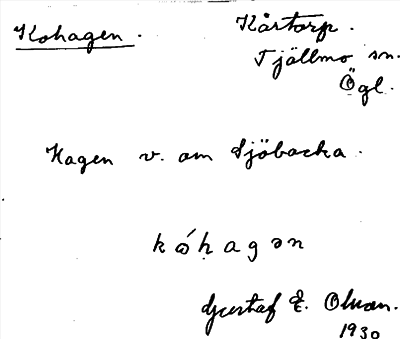 Kohagen.
Kårtorp.
Tjällmo sn.
Ögl.
Hagen v. om Sjöbacka.
kóḥagən
Gustaf E. Olson.
1930